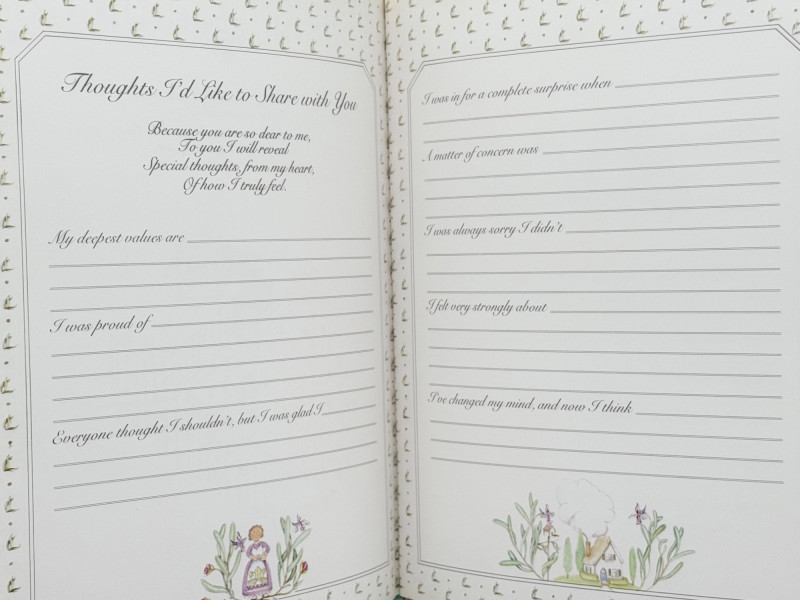 Thoughts I'd Like to Share with You
Because you are so dear to me,
To you I will reveal
Special thoughts, from my heart,
Of how I truly feel.
My deepest values are
I was proud of
Everyone thought I shouldn't, but I was glad I
I was in for a complete surprise when
A matter of concern was
I was always sorry I didn't
I felt very strongly about
I've changed my mind, and now I think